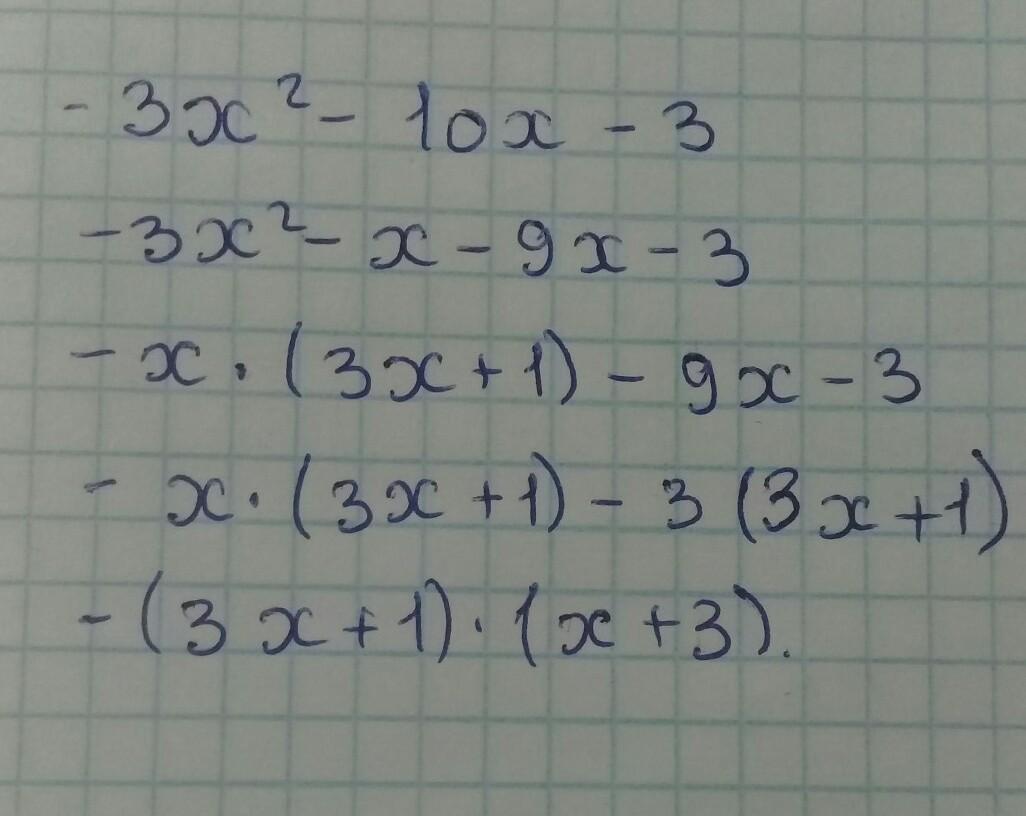 - 3x² - 10x - 3
-3x² - x - 9x - 3
- x · (3x + 1) - 9x - 3
- x · (3x + 1) - 3 (3x + 1)
- (3x + 1) · (x + 3).